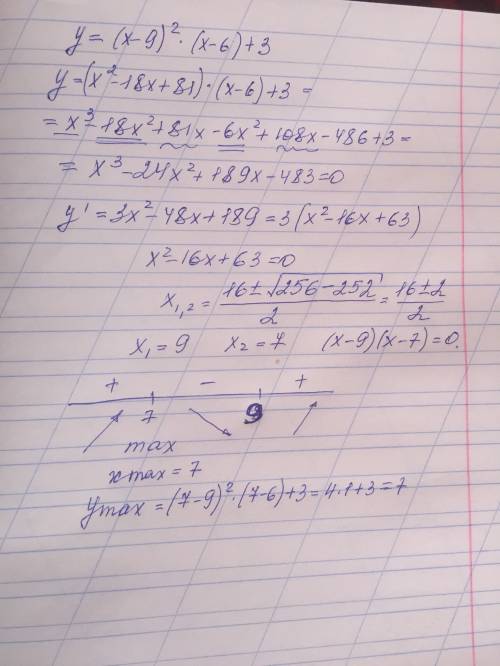 y = (x-9)² · (x-6)+3
y=(x²-18x+81)·(x-6)+3 =
= x³-18x²+81x-6x²+108x-486+3=
= x³-24x²+189x-483=0
y' = 3x²-48x+189=3(x²-16x+63)
x²-16x+63=0
x₁,₂ = (16±√(256-252))/2 = (16±2)/2
x₁ = 9 x₂ = 7 (x-9)(x-7)=0.
+ - +
7 9
max
x max = 7
ymax = (7-9)²·(7-6)+3=4·1+3=7